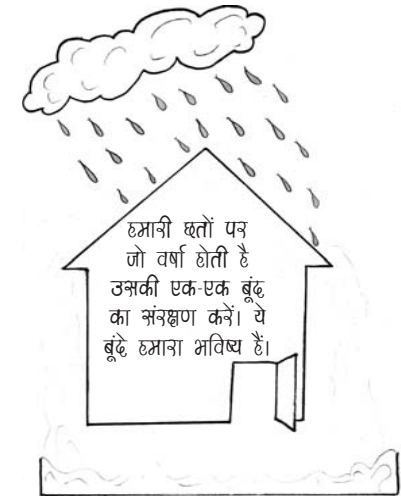 हमारी छतों पर
जो वर्षा होती है
उसकी एक-एक बूंद
का संरक्षण करें। ये
बूंदे हमारा भविष्य हैं।